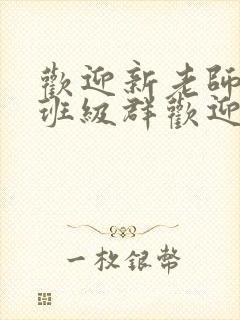 歡迎新老師
班級群歡迎
一枚銀幣